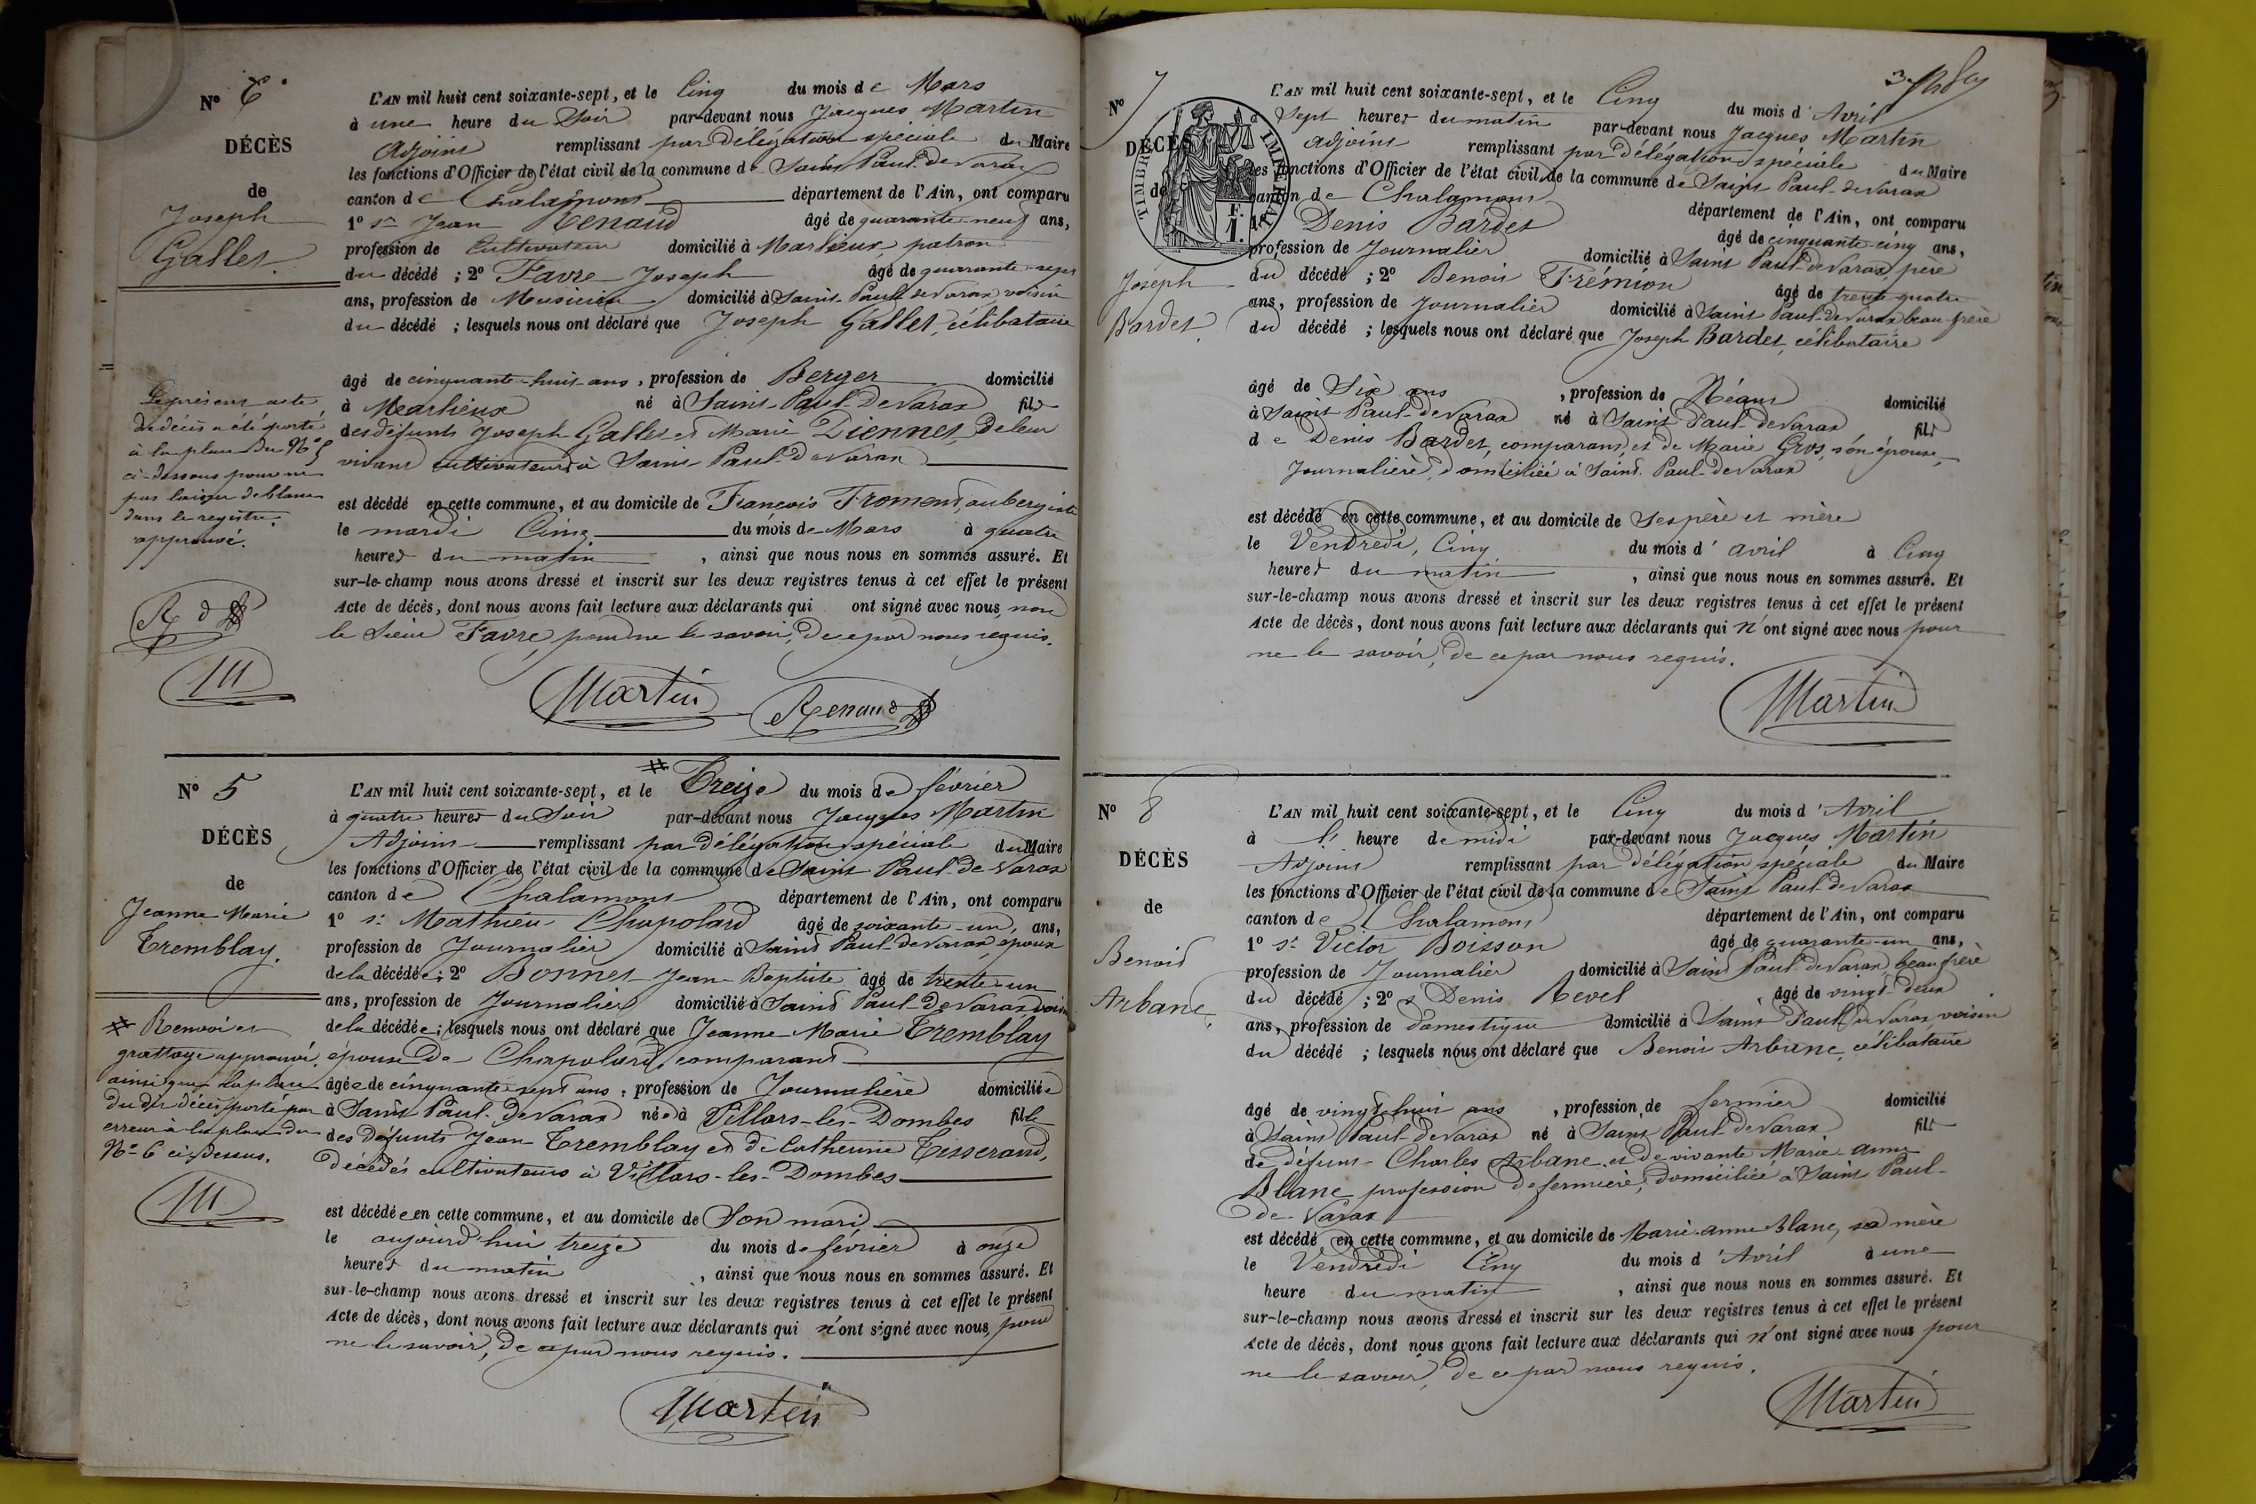 N° 6
DÉCÈS
de
Joseph
Gallet.
Le présent acte
de décès a été porté
à la place du N° 5
ci-dessous pour ne
pas laisser de blanc
dans le registre.
approuvé.
R d
M
L'AN mil huit cent soixante-sept, et le Cinq du mois de Mars
à une heure du Soir par-devant nous Jacques Martin
Adjoint remplissant par délégation spéciale du Maire
les fonctions d'Officier de l'état civil de la commune de Saint Paul-de Varax
canton de Chalamont département de l'Ain, ont comparu
1° sr Jean Renaud âgé de quarante-neuf ans,
profession de Cultivateur domicilié à Marlieux, patron
du décédé ; 2° Favre Joseph âgé de quarante-sept
ans, profession de Musicien domicilié à Saint-Paul de Varax, voisin
du décédé ; lesquels nous ont déclaré que Joseph Gallet, célibataire
âgé de cinquante-huit ans, profession de Berger domicilié
à Marlieux né à Saint-Paul-De Varax fils
des défunts Joseph Gallet et Marie Diennet, De leur
vivant cultivateurs à Saint Paul-de Varax
est décédé en cette commune, et au domicile de François Froment, aubergiste
le mardi Cinq du mois de Mars à quatre
heures du matin, ainsi que nous nous en sommes assuré. Et
sur-le-champ nous avons dressé et inscrit sur les deux registres tenus à cet effet le présent
Acte de décès, dont nous avons fait lecture aux déclarants qui ont signé avec nous, non
le Sieur Favre, pour ne le savoir, de ce par nous requis.
Martin Renaud
N° 5
DÉCÈS
de
Jeanne Marie
Tremblay.
# Renvoi et
grattage approuvé,
ainsi que la place
du dit décès porté par
erreur à la place du
N° 6 ci-dessus.
M
L'AN mil huit cent soixante-sept, et le # Treize du mois de février
à quatre heures du Soir par-devant nous Jacques Martin
Adjoint remplissant par délégation spéciale du Maire
les fonctions d'Officier de l'état civil de la commune de Saint Paul-de-Varax
canton de Chalamont département de l'Ain, ont comparu
1° sr Mathieu Chapolard âgé de soixante-un, ans,
profession de Journalier domicilié à Saint Paul-de Varax, époux
de la décédée ; 2° Bonnet Jean-Baptiste âgé de trente-un
ans, profession de Journalier domicilié à Saint Paul De Varax voisin
de la décédée ; lesquels nous ont déclaré que Jeanne Marie Tremblay
épouse De Chapolard, comparant
âgée de cinquante-sept ans, profession de Journalière domiciliée
à Saint Paul-De Varax née à Villars-les-Dombes fille
des Défunts Jean Tremblay et de Catherine Tisserand,
Décédés cultivateurs à Villars-les-Dombes
est décédée en cette commune, et au domicile de Son mari
le aujourd'hui treize du mois de février à onze
heures du matin, ainsi que nous nous en sommes assuré. Et
sur-le-champ nous avons dressé et inscrit sur les deux registres tenus à cet effet le présent
Acte de décès, dont nous avons fait lecture aux déclarants qui n'ont signé avec nous, pour
ne le savoir, de ce par nous requis.
Martin
N° 7
DÉCÈS
de
Joseph
Bardet.
TIMBRE IMPERIAL
1 F.
L'AN mil huit cent soixante-sept, et le Cinq du mois d'Avril
Sept heures du matin par-devant nous Jacques Martin
Adjoint remplissant par délégation spéciale du Maire
les fonctions d'Officier de l'état civil de la commune de Saint Paul-de Varax
canton de Chalamont département de l'Ain, ont comparu
1° Denis Bardet âgé de cinquante-cinq ans,
profession de Journalier domicilié à Saint Paul-de Varax, père
du décédé ; 2° Benoit Frémion âgé de trente-quatre
ans, profession de Journalier domicilié à Saint Paul-de Varax beau-frère
du décédé ; lesquels nous ont déclaré que Joseph Bardet, célibataire
âgé de Six ans, profession de Néant domicilié
à Saint Paul-de Varax né à Saint Paul-de Varax fils
de Denis Bardet, comparant, et de Marie Gros, son épouse,
Journalière, domiciliée à Saint Paul-de Varax
est décédé en cette commune, et au domicile de Ses père et mère
le Vendredi, Cinq du mois d'avril à Cinq
heures du matin, ainsi que nous nous en sommes assuré. Et
sur-le-champ nous avons dressé et inscrit sur les deux registres tenus à cet effet le présent
Acte de décès, dont nous avons fait lecture aux déclarants qui n'ont signé avec nous pour
ne le savoir, de ce par nous requis.
Martin
N° 8
DÉCÈS
de
Benoit
Arbane.
L'AN mil huit cent soixante-sept, et le Cinq du mois d'Avril
à l' heure de midi par-devant nous Jacques Martin
Adjoint remplissant par délégation spéciale du Maire
les fonctions d'Officier de l'état civil de la commune de Saint Paul de Varax
canton de Chalamont département de l'Ain, ont comparu
1° sr Victor Boisson âgé de quarante-un ans,
profession de Journalier domicilié à Saint Paul-de Varax, beau frère
du décédé ; 2° s Denis Revel âgé de vingt-deux
ans, profession de domestique domicilié à Saint Paul de Varax voisin
du décédé ; lesquels nous ont déclaré que Benoit Arbane, célibataire
âgé de vingt-huit ans, profession de fermier domicilié
à Saint Paul-de Varax né à Saint Paul-de Varax fils
de défunt Charles Arbane et de vivante Marie-anne
Blanc, profession de fermière, domiciliée à Saint Paul-
de-Varax
est décédé en cette commune, et au domicile de Marie-anne Blanc, sa mère
le Vendredi Cinq du mois d'Avril à une
heure du matin, ainsi que nous nous en sommes assuré. Et
sur-le-champ nous avons dressé et inscrit sur les deux registres tenus à cet effet le présent
Acte de décès, dont nous avons fait lecture aux déclarants qui n'ont signé avec nous pour
ne le savoir, de ce par nous requis.
Martin